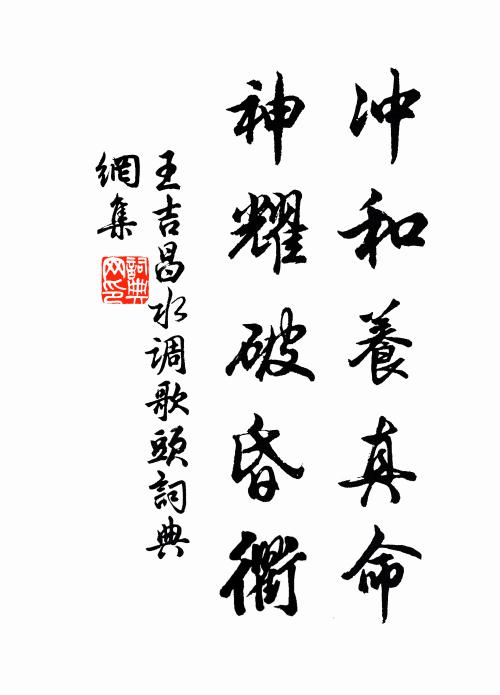 冲和養真命
神耀破昏衢
王吉昌水调歌頭詞典
網集
詞典
网印